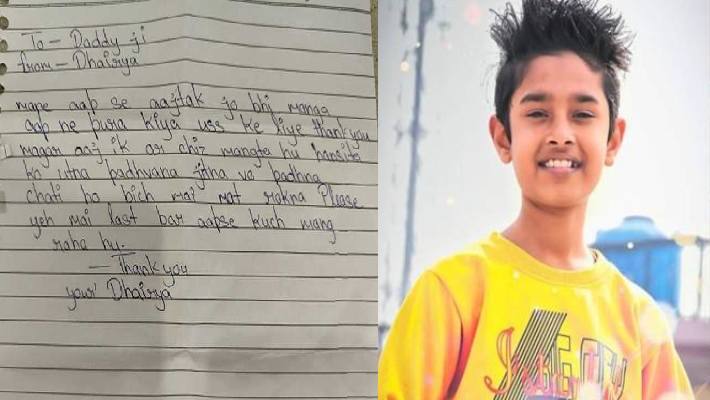 To - Daddy ji
from - Dhairya
mane aap se aajtak jo bhi manga
aap ne pura kiya uss ke liye thankyou
magar aaj ik or chiz mangta hu hansita
ko utna padhvana jitna vo padhna
chati ho bich mai mat rokna Please
yeh mai last bar aapse kuch mang
raha hu.
- Thank you
your Dhairya